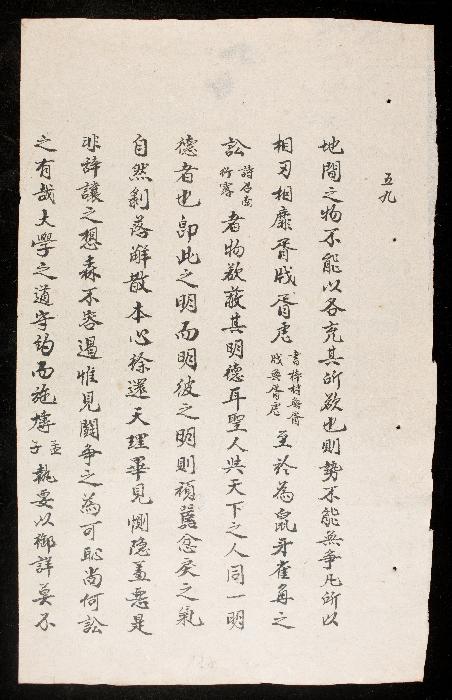 五九
地間之物不能以各充其所欲也則勢不能無爭凡所以
相刃相靡胥戕胥虐書梓材無胥戕無胥虐至於為鼠牙雀角之
訟詩召南行露者物欲蔽其明德耳聖人與天下之人同一明
德者也即此之明而明彼之明則頑嚚忿戾之氣
自然剝落解散本心徐還天理畢見惻隱羞惡是
非辭讓之想森不容遏惟見鬪爭之為可恥尚何訟
之有哉大學之道守約而施博孟子執要以御詳莫不